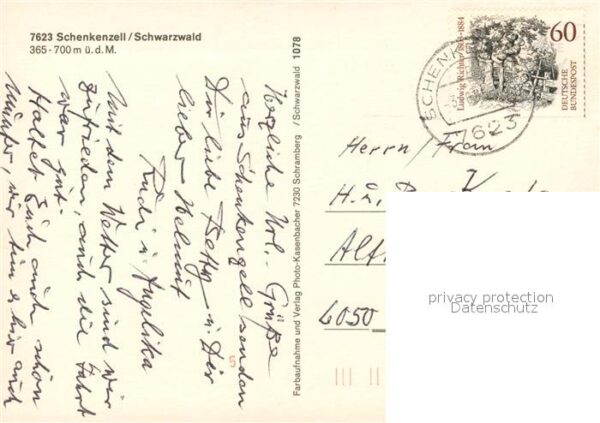 7623 Schenkenzell / Schwarzwald
365 - 700 m ü. d. M.
Herzliche Url.-Grüße
aus Schenkenzell senden
Dir liebe Betty u. Dir
lieber Helmut
Rudi u. Angelika
Mit dem Wetter sind wir
zufrieden, auch die Fahrt
war gut.
Haltet Euch auch schön
munter, wir tun es hier auch
Farbaufnahme und Verlag Photo-Kasenbacher 7230 Schramberg / Schwarzwald 1078
5
SCHENK
7623
Ludwig Richter 1803-1884
60
DEUTSCHE
BUNDESPOST
Herrn/Frau
H. u.
Alf
4050
privacy protection
Datenschutz